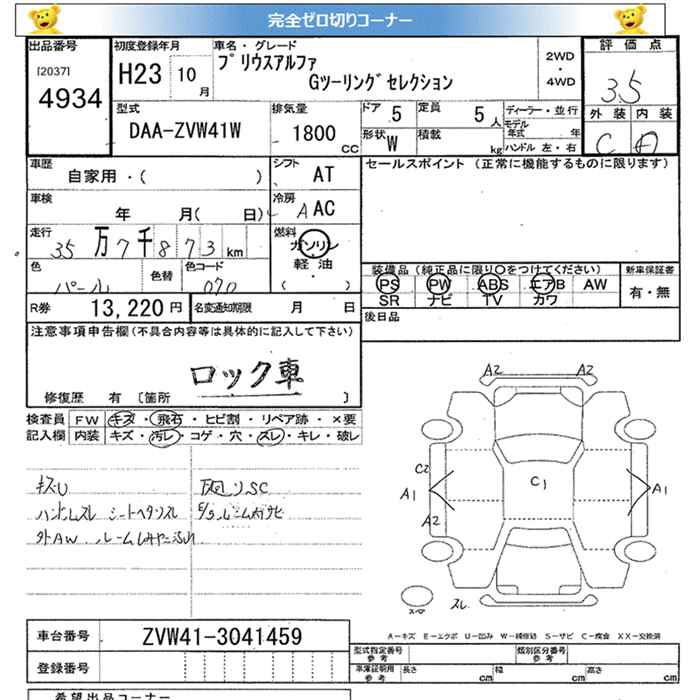 完全ゼロ切りコーナー
出品番号 初度登録年月 車名・グレード 評価点
[2037] プリウスアルファ 2WD
4934 H23 10月 Gツーリングセレクション ・ 4WD 3.5
型式 排気量 ドア 5 定員 5人 ディーラー・並行 外装 内装
DAA-ZVW41W 1800cc 形状 W 積載 kg モデル年式 年 C
ハンドル 左・右
車歴 シフト セールスポイント (正常に機能するものに限ります)
自家用・( ) AT
車検 冷房
年 月( 日) AAC
走行 燃料
35万7千873km ガソリン
色 色替 色コード 軽油 装備品(純正品に限り○をつけてください) 新車保証書
パール 070 ( ) PS PW ABS エアB AW 有・無
SR ナビ TV カワ
R券 13,220円 名変通知期限 月 日 後日品
注意事項申告欄(不具合内容等は具体的に記入して下さい)
ロック車
修復歴 有 [箇所 ]
検査員 FW キズ・飛石・ヒビ割・リペア跡・×要
記入欄 内装 キズ・汚レ・コゲ・穴・スレ・キレ・破レ
A2 A2
C2
A1 C1 A1
A2
キズU 下廻りSC
ハンドルスレ シートヘタリスレ
外AW
スレ
A-キズ E-エクボ U-凹み W-補修跡 S-サビ C-腐食 XX-交換済
車台番号 ZVW41-3041459
型式指定番号 参考 類別区分番号 参考
登録番号 車庫証明用 参考 長さ cm 幅 cm 高さ cm
希望出品コーナー